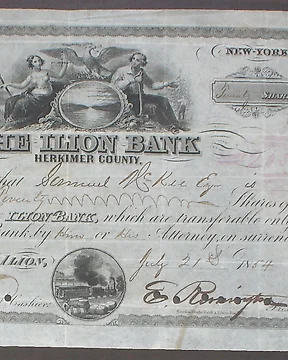 NEW-YORK
Twenty SHAR
HE ILION BANK
HERKIMER COUNTY.
hat Samuel McKee Esqr is
Twenty Shares of
ILION BANK, which are transferable onl
ank, by him or his Attorney, on surren
ILION, July 21st 1854
Cashier. E. Remington